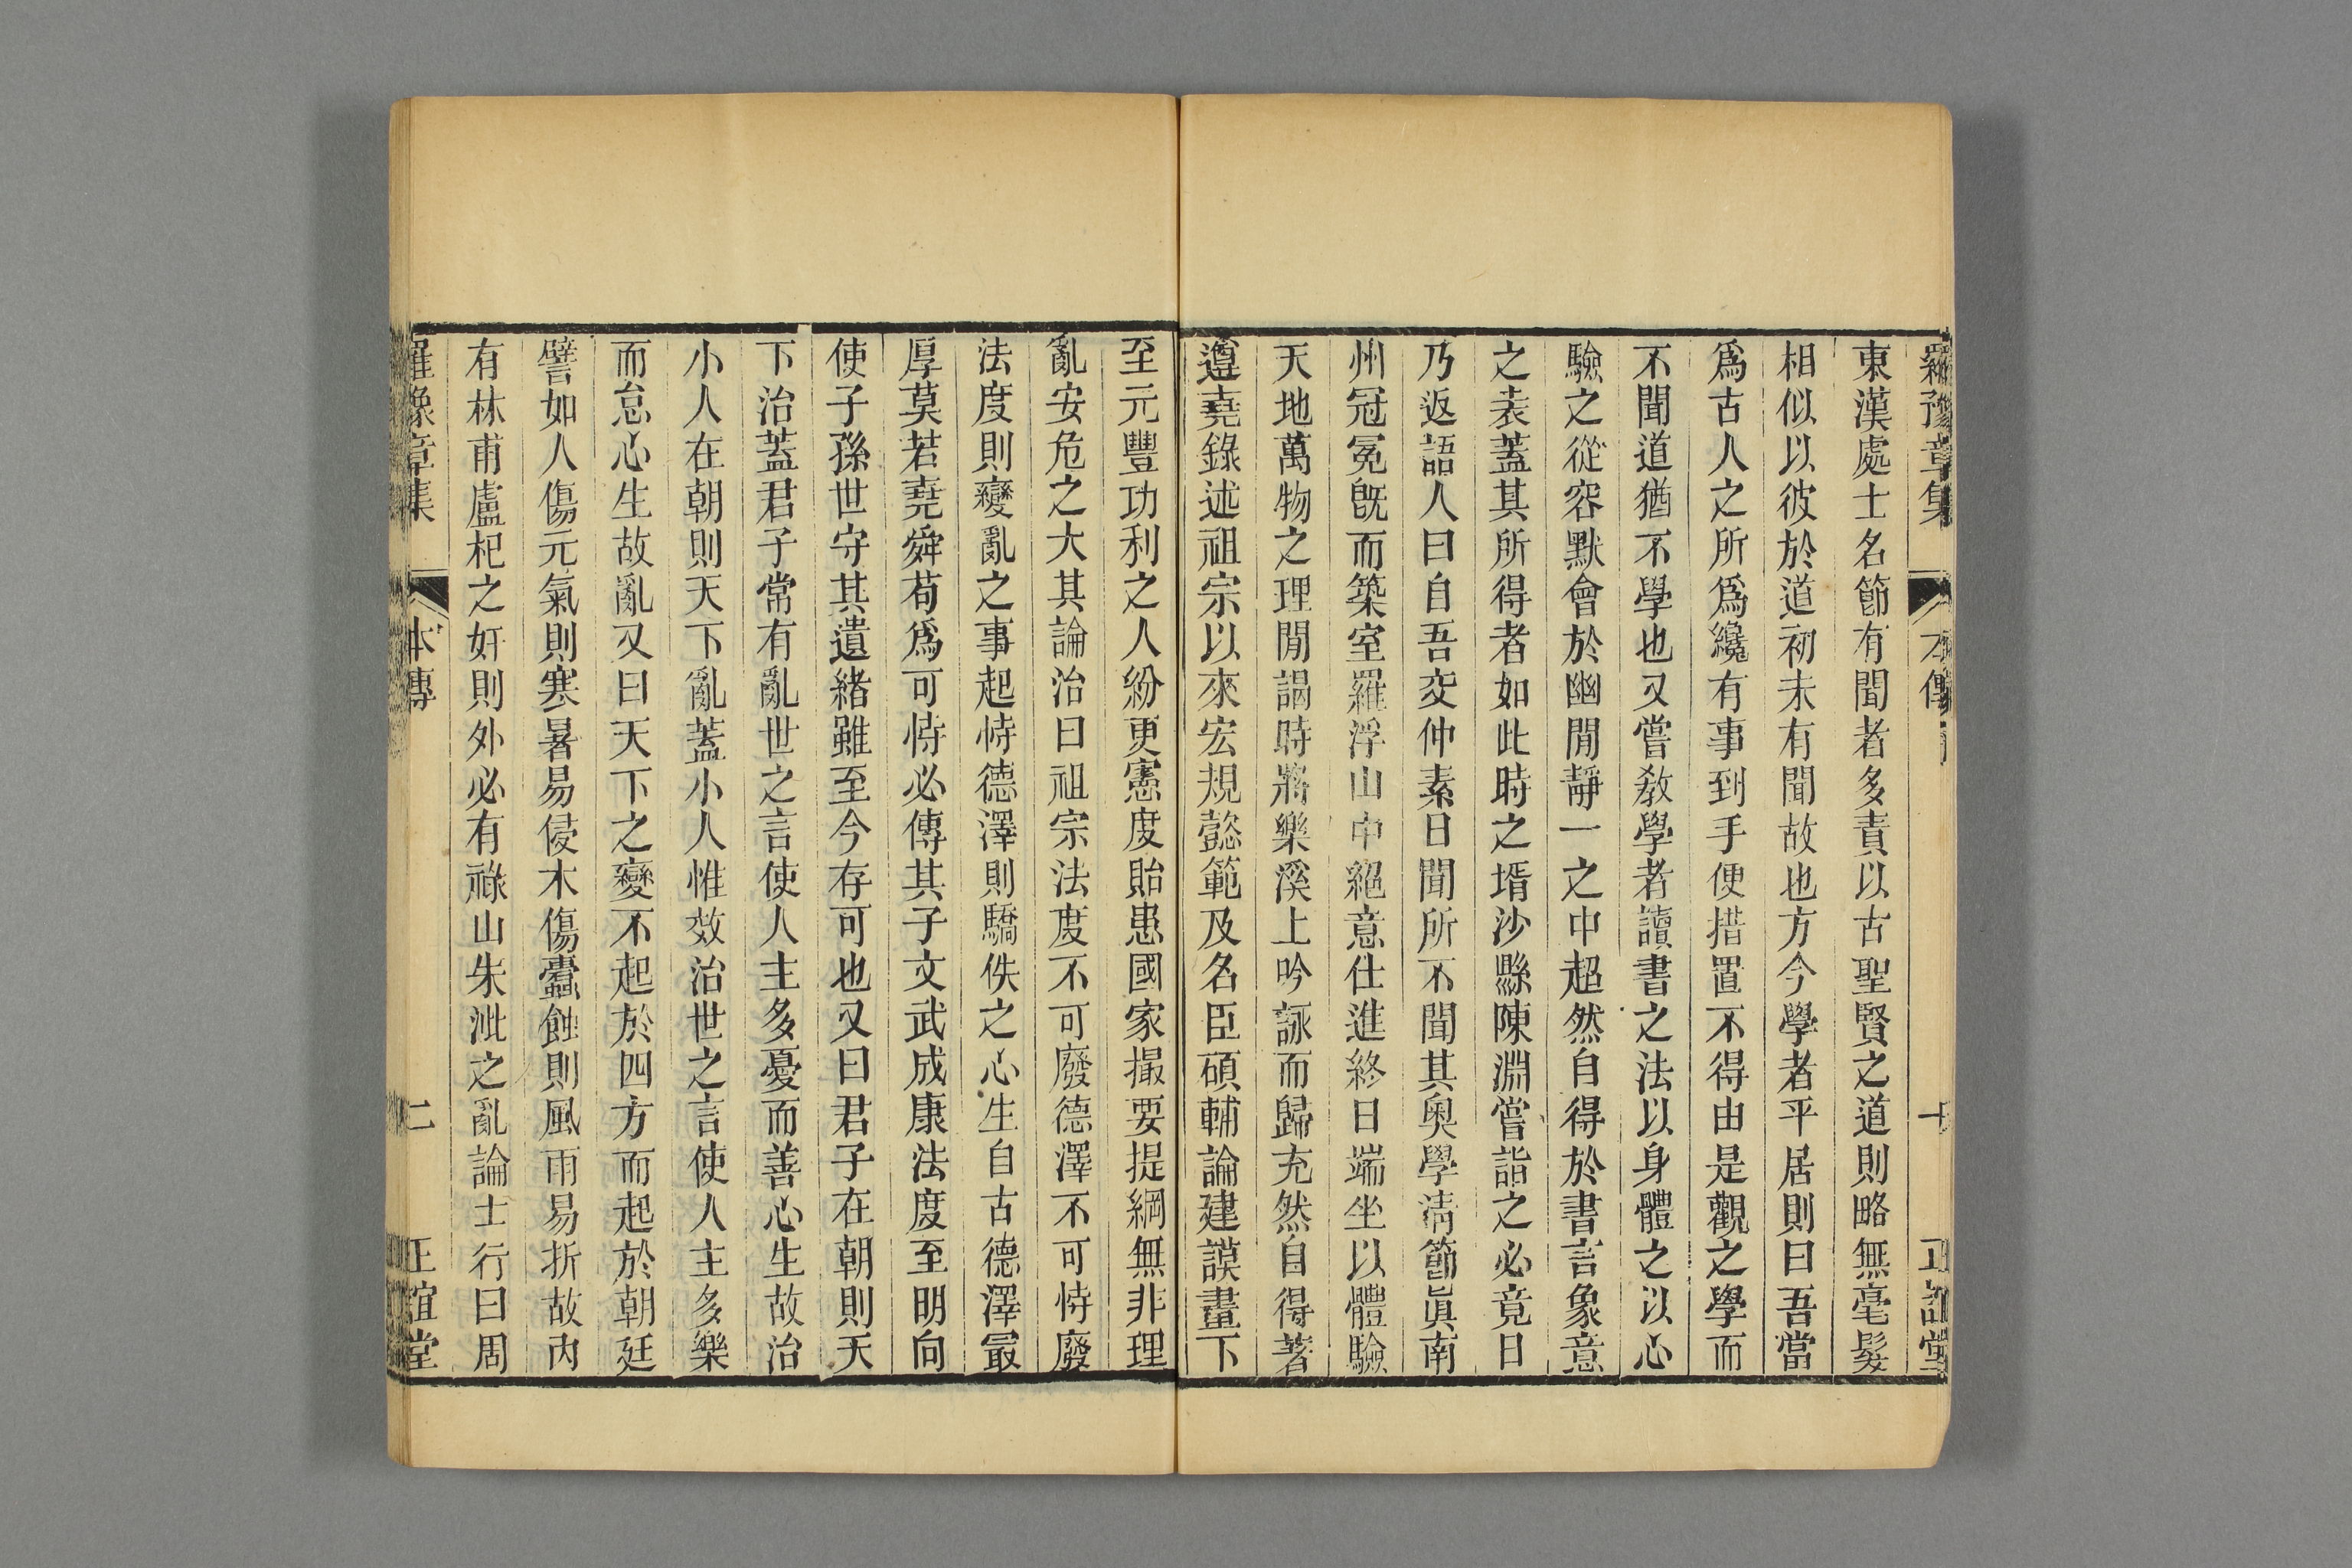 羅豫章集 本傳 正誼堂
東漢處士名節有聞者多責以古聖賢之道則略無毫髮
相似以彼於道初未有聞故也方今學者平居則曰吾當
爲古人之所爲纔有事到手便措置不得由是觀之學而
不聞道猶不學也又嘗敎學者讀書之法以身體之以心
驗之從容默會於幽閒靜一之中超然自得於書言象意
之表蓋其所得者如此時之壻沙縣陳淵嘗詣之必竟日
乃返語人曰自吾交仲素日聞所不聞其奧學淸節眞南
州冠冕旣而築室羅浮山中絕意仕進終日端坐以體驗
天地萬物之理閒謁時將樂溪上吟詠而歸充然自得著
遵堯錄述祖宗以來宏規懿範及名臣碩輔論建謨畫下
至元豐功利之人紛更憲度貽患國家撮要提綱無非理
亂安危之大其論治曰祖宗法度不可廢德澤不可恃廢
法度則變亂之事起恃德澤則驕佚之心生自古德澤最
厚莫若堯舜苟爲可恃必傳其子文武成康法度至明向
使子孫世守其遺緒雖至今存可也又曰君子在朝則天
下治蓋君子常有亂世之言使人主多憂而善心生故治
小人在朝則天下亂蓋小人惟效治世之言使人主多樂
而怠心生故亂又曰天下之變不起於四方而起於朝廷
譬如人傷元氣則寒暑易侵木傷蠹蝕則風雨易折故內
有林甫盧杞之奸則外必有祿山朱泚之亂論士行曰周
羅豫章集 本傳 二 正誼堂